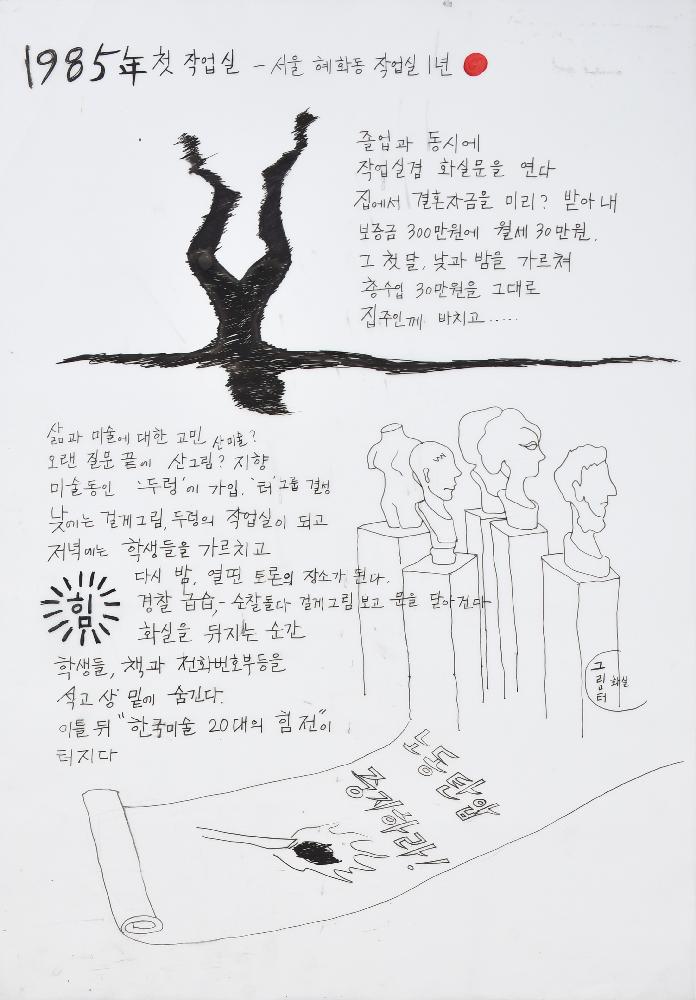 1985年 첫 작업실 - 서울 혜화동 작업실 1년
졸업과 동시에
작업실겸 화실문을 연다
집에서 결혼자금을 미리? 받아내
보증금 300만원에 월세 30만원.
그 첫달, 낮과 밤을 가르쳐
총수입 30만원을 그대로
집주인께 바치고.....
삶과 미술에 대한 고민 산미술?
오랜 질문 끝에 산그림? 지향
미술동인 '두렁'에 가입. '터'그룹 결성
낮에는 걸개그림, 두렁의 작업실이 되고
저녁에는 학생들을 가르치고
다시 밤, 열띤 토론의 장소가 된다.
경찰 급습,- 순찰돌다 걸개그림 보고 문을 닫아건다
화실을 뒤지는 순간
힘
학생들, 책과 전화번호부등을
석고상 밑에 숨긴다.
이틀 뒤 "한국미술 20대의 힘전"이
터지다
그림터 화실
노동탄압
중지하라!